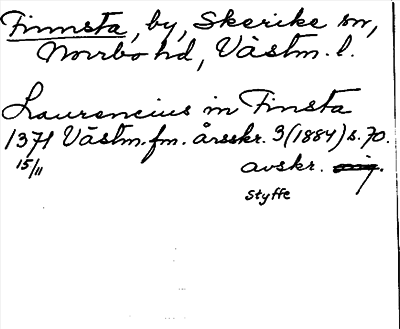 Finnsta, by, Skerike sn,
Norrbo hd, Västm. l.
Laurencius in Finsta
1371 Västm. fm. årsskr. 3 (1884) s. 70.
15/11 avskr.
Styffe